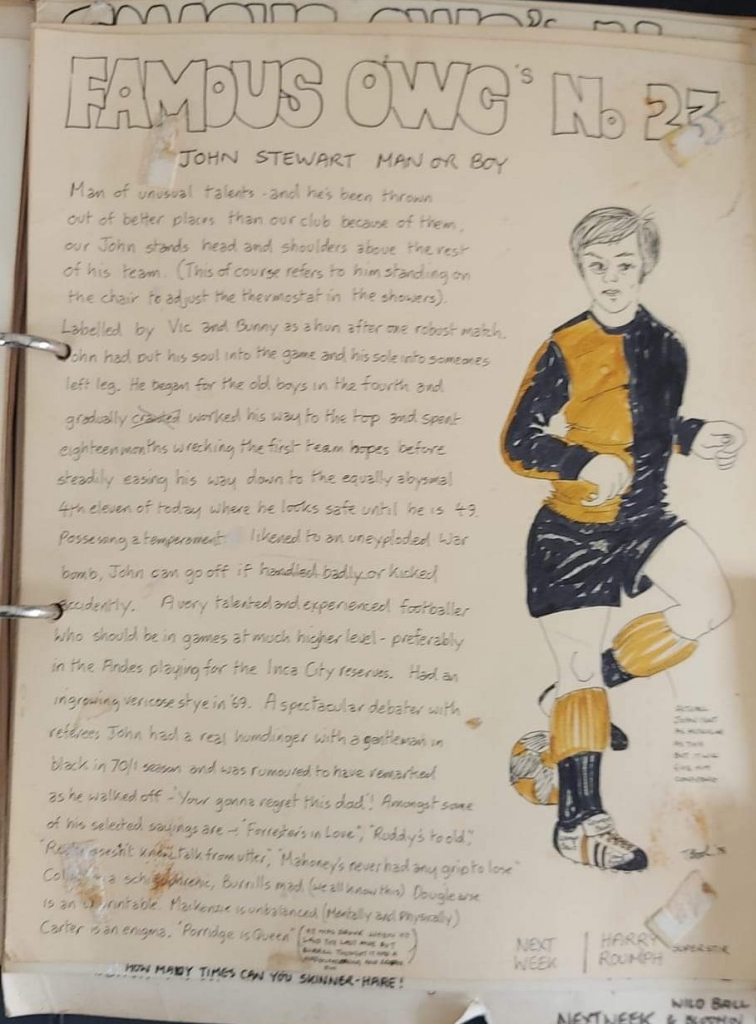 FAMOUS OWC's No 23
JOHN STEWART MAN OR BOY
Man of unusual talents - and he's been thrown
out of better places than our club because of them,
our John stands head and shoulders above the rest
of his team. (This of course refers to him standing on
the chair to adjust the thermostat in the showers).
Labelled by Vic and Bunny as a hun after one robust match.
John had put his soul into the game and his sole into someones
left leg. He began for the old boys in the fourth and
gradually crawled worked his way to the top and spent
eighteen months wrecking the first team hopes before
steadily easing his way down to the equally abysmal
4th eleven of today where he looks safe until he is 49.
Possesing a temperament likened to an unexploded War
bomb, John can go off if handled badly or kicked
accidently. A very talented and experienced footballer
who should be in games at much higher level - preferably
in the Andes playing for the Inca City reserves. Had an
ingrowing vericose stye in '69. A spectacular debater with
referees John had a real humdinger with a gentleman in
black in 70/1 season and was rumoured to have remarked
as he walked off - 'Your gonna regret this dad'! Amongst some
of his selected sayings are - "Forrester's in Love", "Ruddy's to old",
talk from utter," "Mahoney's never had any grip to lose"
a schizophrenic, Burrills mad (we all know this) Douglas
is an unprintable. Mackenzie is unbalanced (Mentally and Physically)
Carter is an enigma. "Porridge is Queen"
HOW MANY TIMES CAN YOU SKINNER-HARE!
ACTUAL
JOHN ISN'T
AS MUSCULAR
AS THIS
BUT IT WILL
GIVE HIM
CONFIDENCE
NEXT WEEK | HARRY ROUMPH SUPERSTIR
WILD BALL
NEXT WEEK &